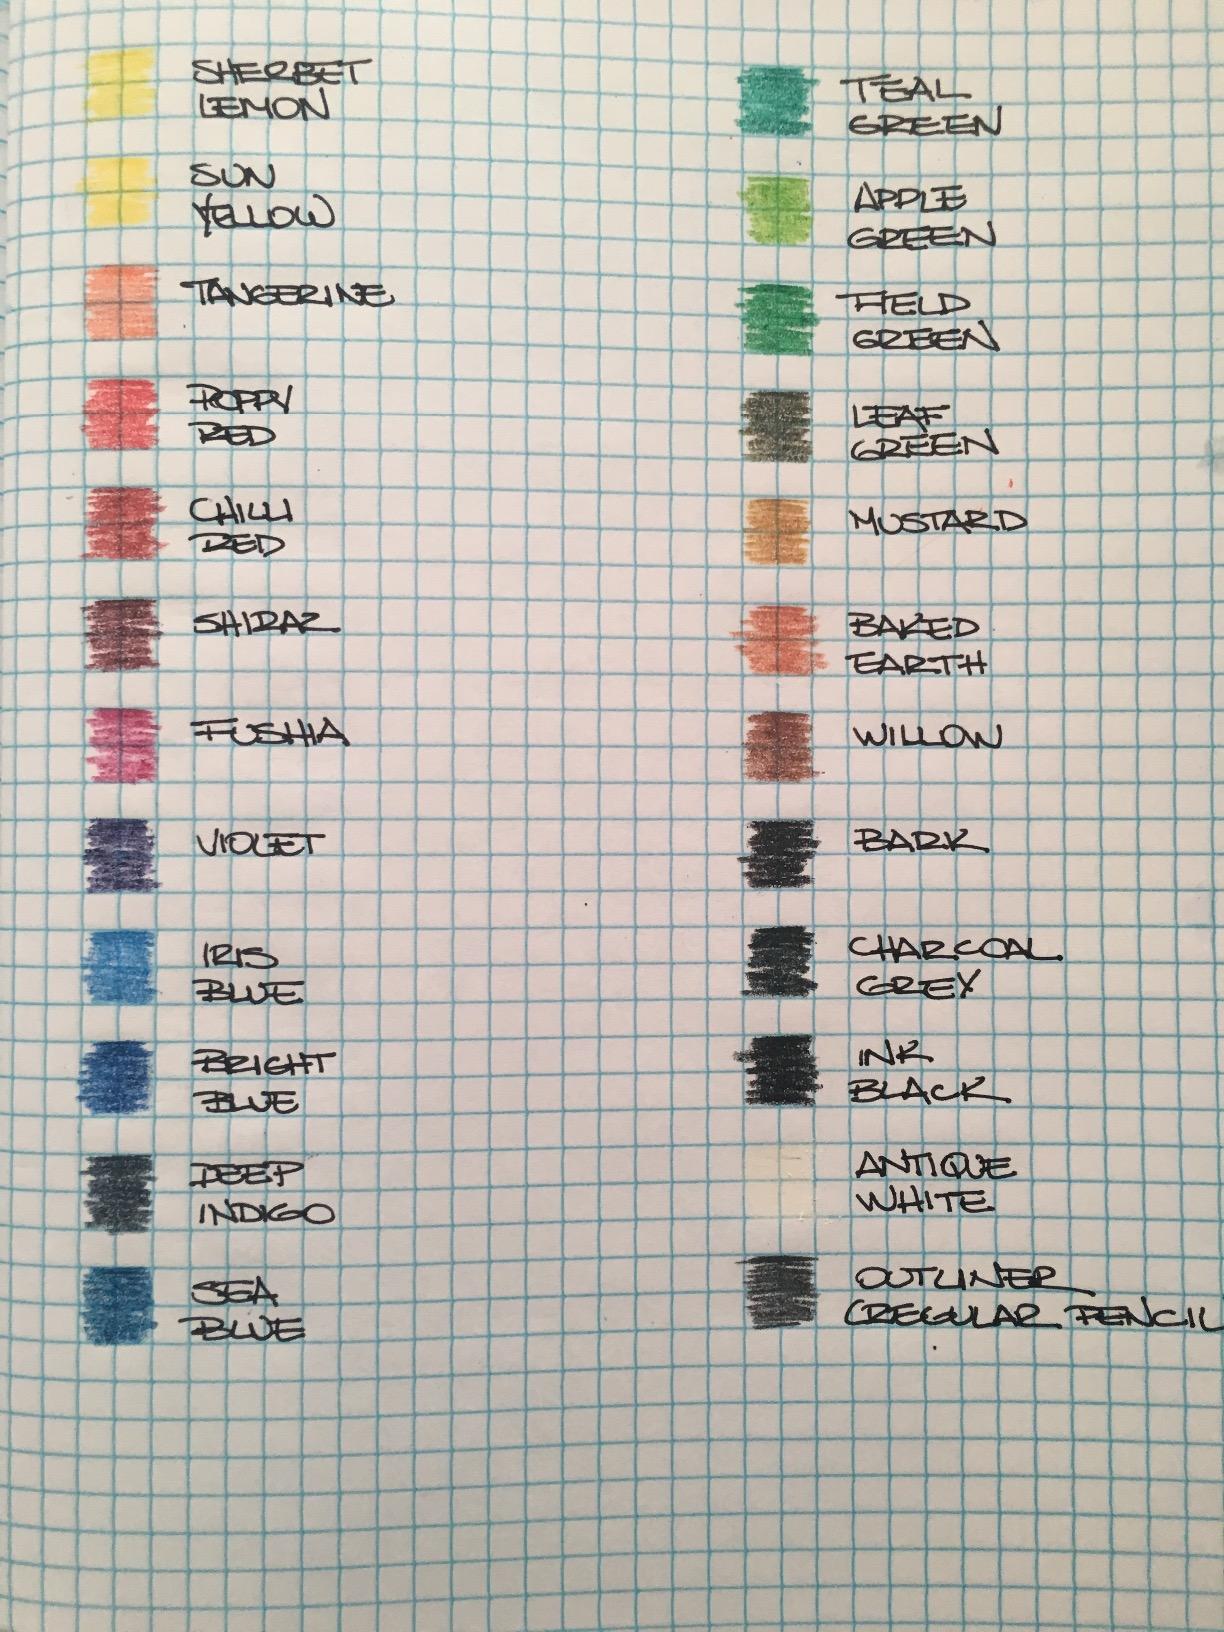 SHERBET
LEMON
SUN
YELLOW
TANGERINE
POPPY
RED
CHILLI
RED
SHIRAZ
FUSHIA
VIOLET
IRIS
BLUE
BRIGHT
BLUE
DEEP
INDIGO
SEA
BLUE
TEAL
GREEN
APPLE
GREEN
FIELD
GREEN
LEAF
GREEN
MUSTARD
BAKED
EARTH
WILLOW
BARK
CHARCOAL
GREY
INK
BLACK
ANTIQUE
WHITE
OUTLINER
(REGULAR PENCIL